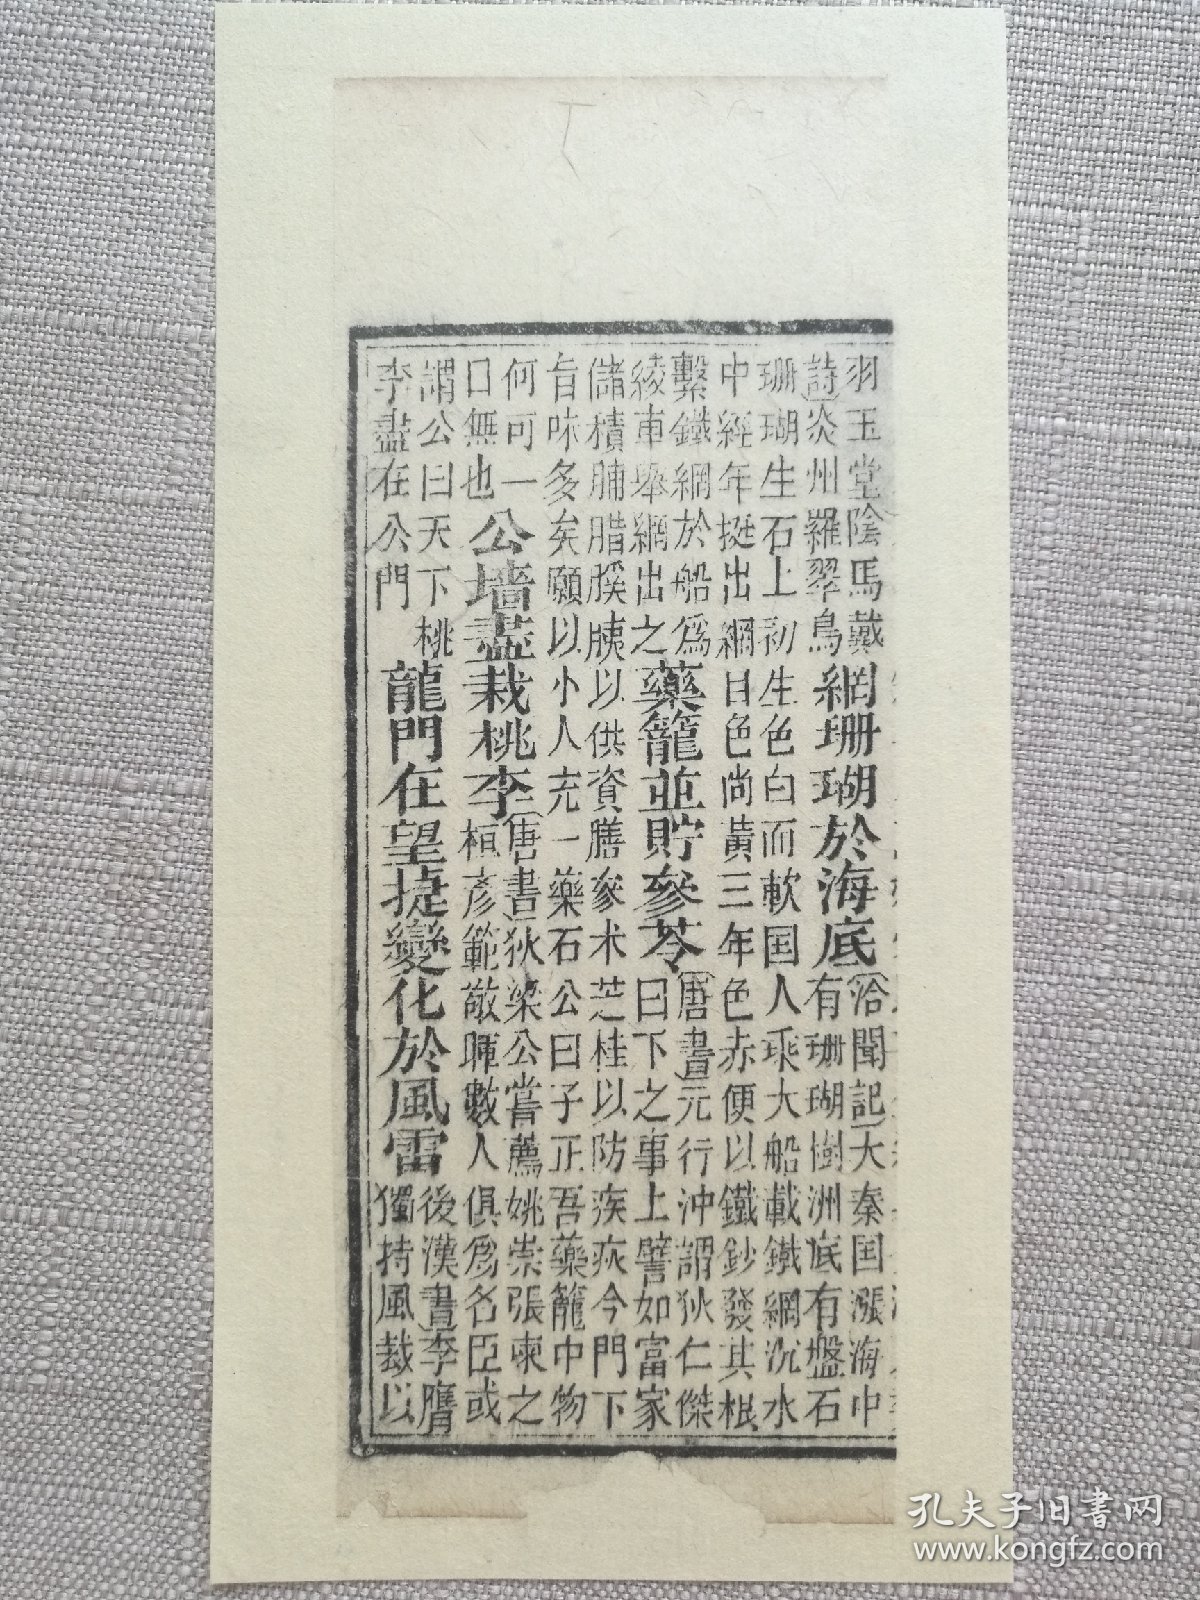 羽玉堂陰馬戴
詩炎州羅翠鳥
網珊瑚於海底
洽聞記大秦国漲海中
有珊瑚樹洲底有盤石
珊瑚生石上初生色白而軟国人乘大船載鐵網沉水
中經年挺出網目色尚黃三年色赤便以鐵鈔發其根
繫鐵網於船爲
綾車舉網出之
藥籠並貯參苓
唐書元行沖謂狄仁傑
曰下之事上譬如富家
儲積脯腊膎胰以供資膳參朮芝桂以防疾疢今門下
旨味多矣願以小人充一藥石公曰子正吾藥籠中物
何可一
日無也
公墻盡栽桃李
唐書狄梁公嘗薦姚崇張柬之
桓彥範敬暉數人俱爲名臣或
謂公曰天下桃
李盡在公門
龍門在望捷變化於風雷
後漢書李膺
獨持風裁以
孔夫子旧书网
www.kongfz.com